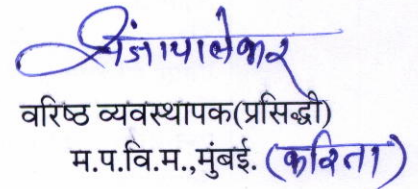 वरिष्ठ व्यवस्थापक(प्रसिद्धी)
म.प.वि.म.,मुंबई. (करिता)